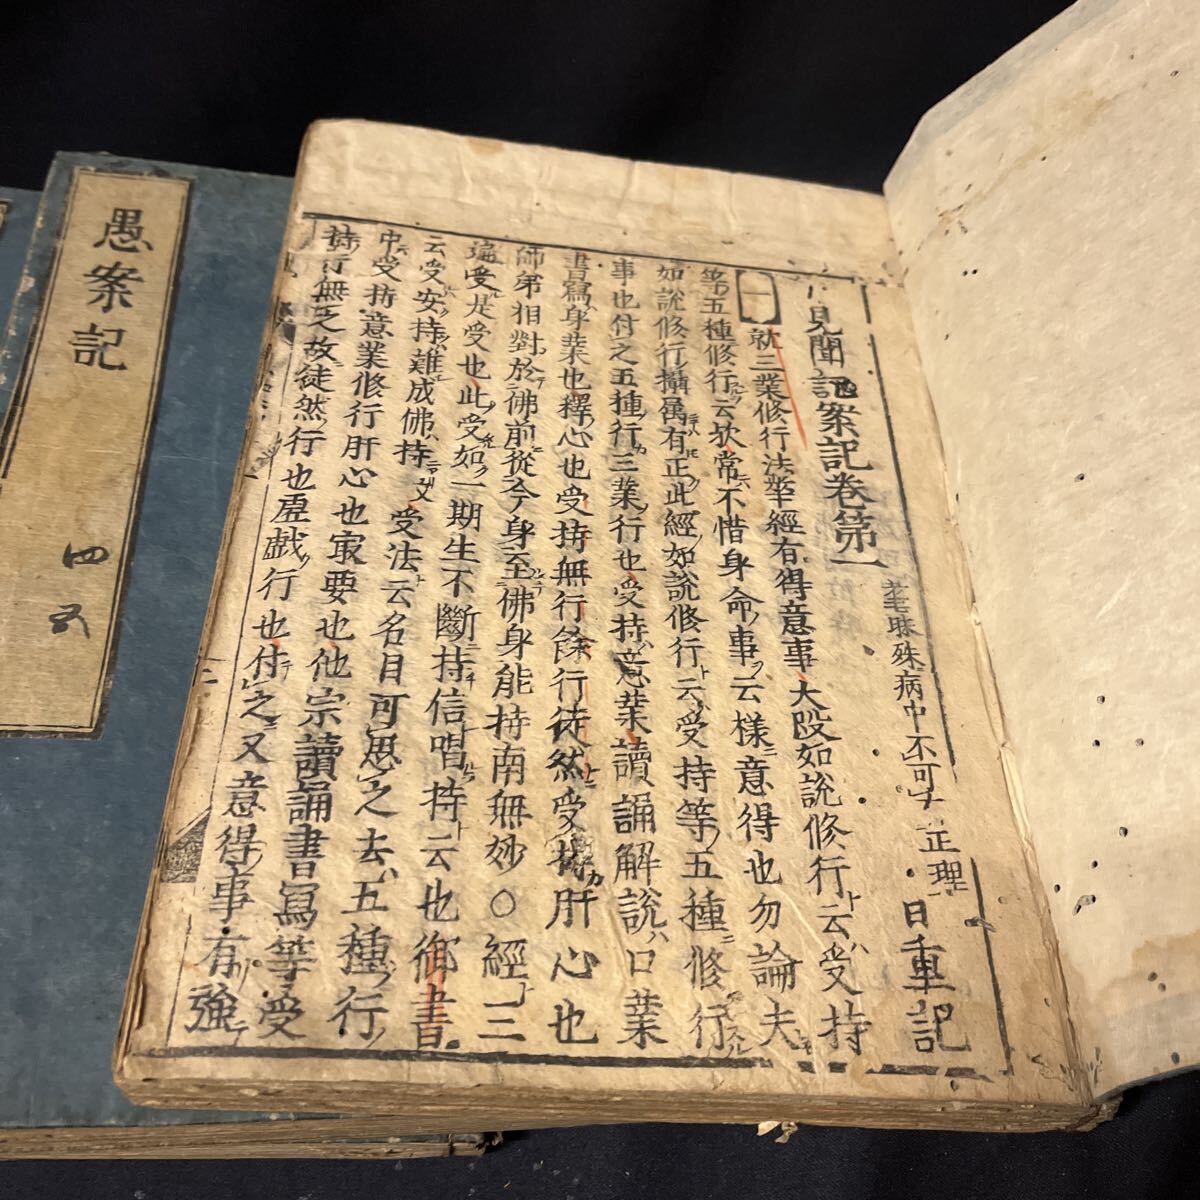 見聞愚案記卷第一
老耄殊病中不可 正理
日重記
一 就三業修行法華經有得意事大段如說修行云ハ受持
等ノ五種修行ヲ云欤常ニハ不惜身命ノ事ヲ云樣ニ意得也勿論夫モ
如說修行ニ攝屬有ヘシ正ク此經ノ如說修行ト云ハ受持等ノ五種ニ修行スル
事也付之五種ノ行カ三業ノ行也受持ハ意業讀誦解說ハ口業
書寫ハ身業也釋心也受持無行餘行徒然受持カ肝心也
師弟相對シテ於佛前從今身至佛身ニ能持南無妙○經ト三
遍受ル是受也此ノ受ルノ如ク一期生不斷ニ持チ信唱持ト云也御書ニ
云受ハ安ク持ハ難シ成佛ハ持ニアリ文受法ト云名目可思之去ハ五種ノ行
中ニハ受持意業修行肝心也最要也他宗讀誦書寫等受
持ノ行無之故徒然ノ行也虛戲ノ行也付之又意得事有リ強
愚案記
四
五